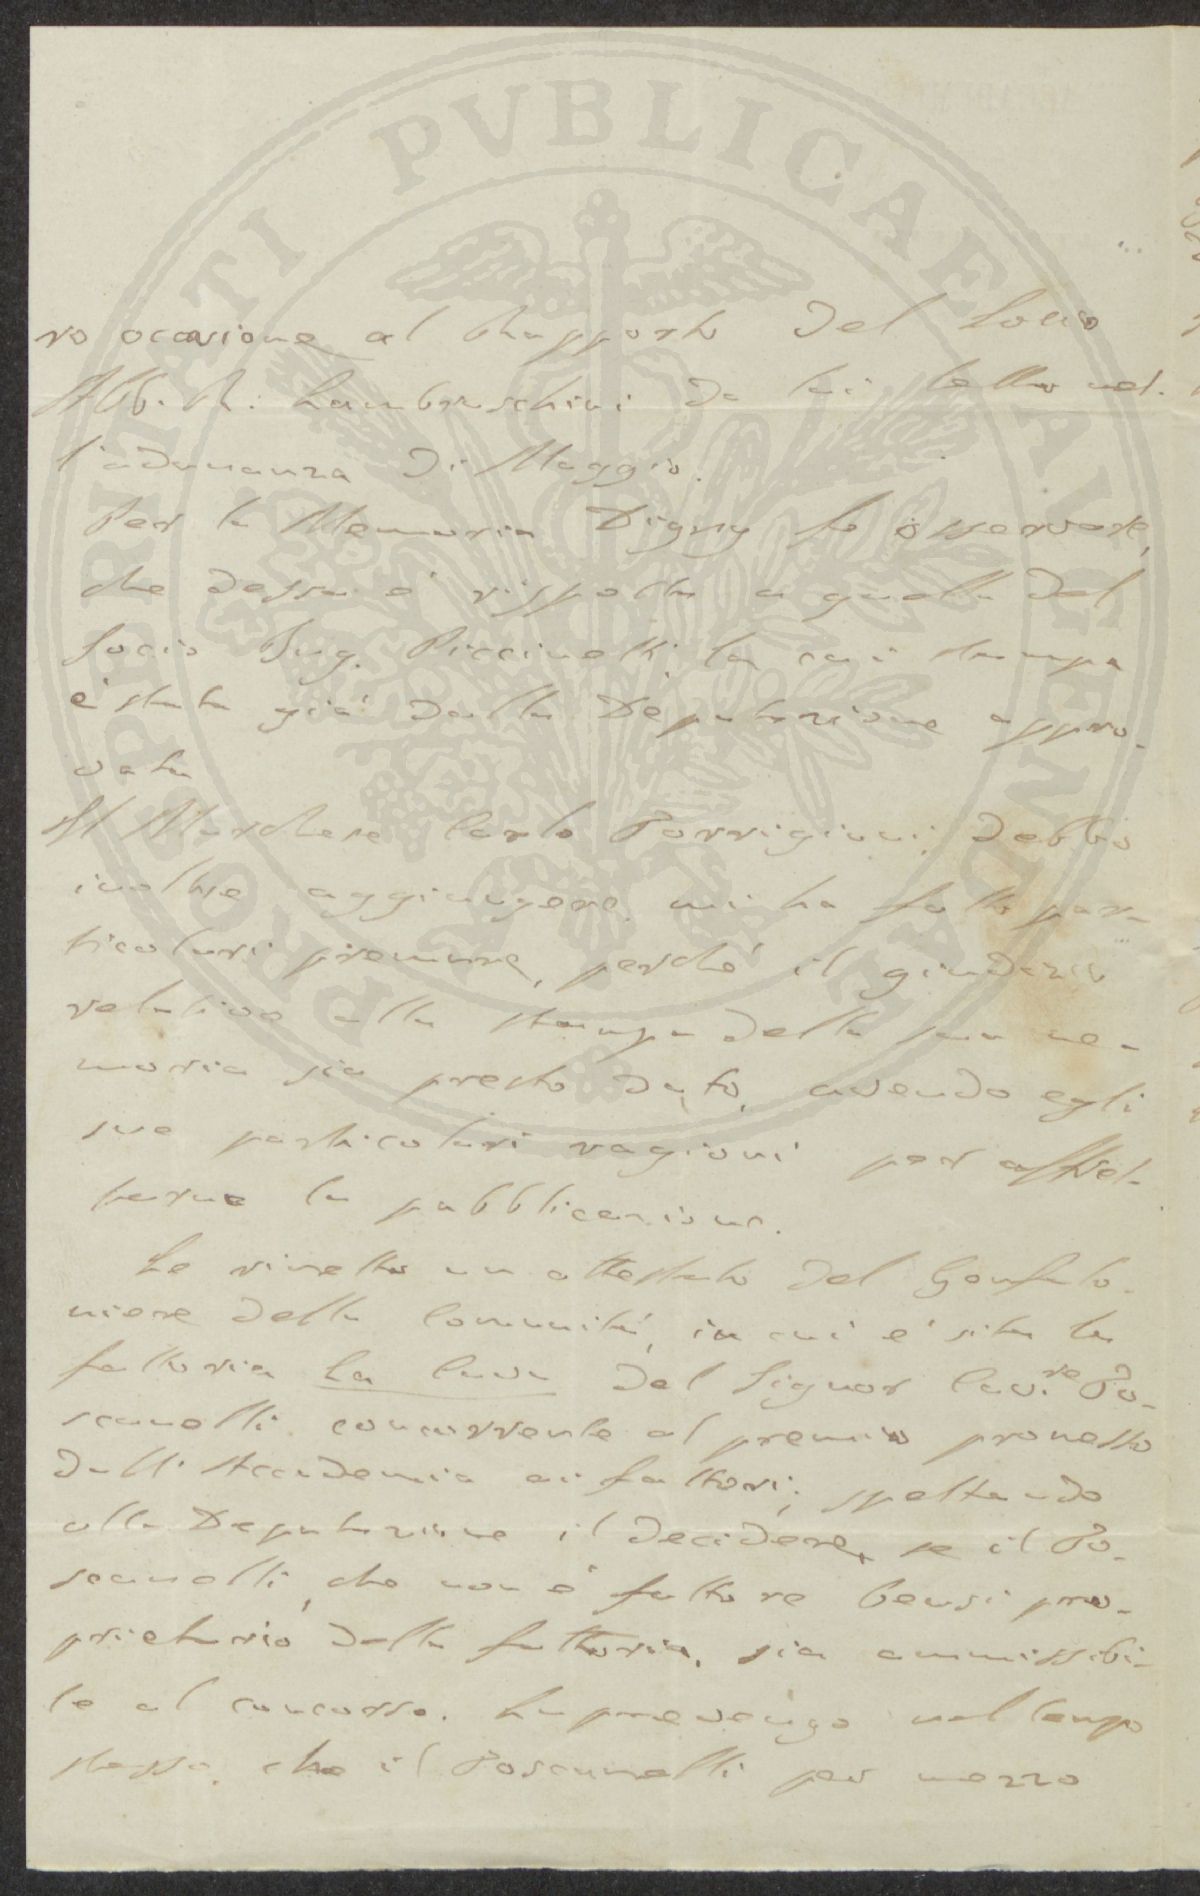 PROSPERITATI PVBLICAE AVGENDAE
ro occasione al Rapporto del Socio
Abb. R. Lambruschini da lui letto nel-
l'adunanza di Maggio.
Per la Memoria Digny fo osservare,
che dessa è risposta a quella del
Socio Ing. Piccinetti la cui stampa
è stata già dalla Deputazione appro-
vata
Il Marchese Carlo Torrigiani, debbo
inoltre aggiungere, mi ha fatto par-
ticolari premure, perché il giudizio
relativo alla stampa della sua me-
moria sia presto dato, avendo egli
sue particolari ragioni per affret-
tarne la pubblicazione.
Le rimetto un attestato del Gonfalo-
niere della Comunità, in cui è sita la
fattoria La Cava del Signor Cav.re To-
scanelli concorrente al premio promesso
dall'Accademia ai fattori; spettando
alla Deputazione il decidere, se il To-
scanelli, che non è fattore bensì pro-
prietario della fattoria, sia ammissibi-
le al concorso. La prevengo nel tempo
stesso, che il Toscanelli per mezzo